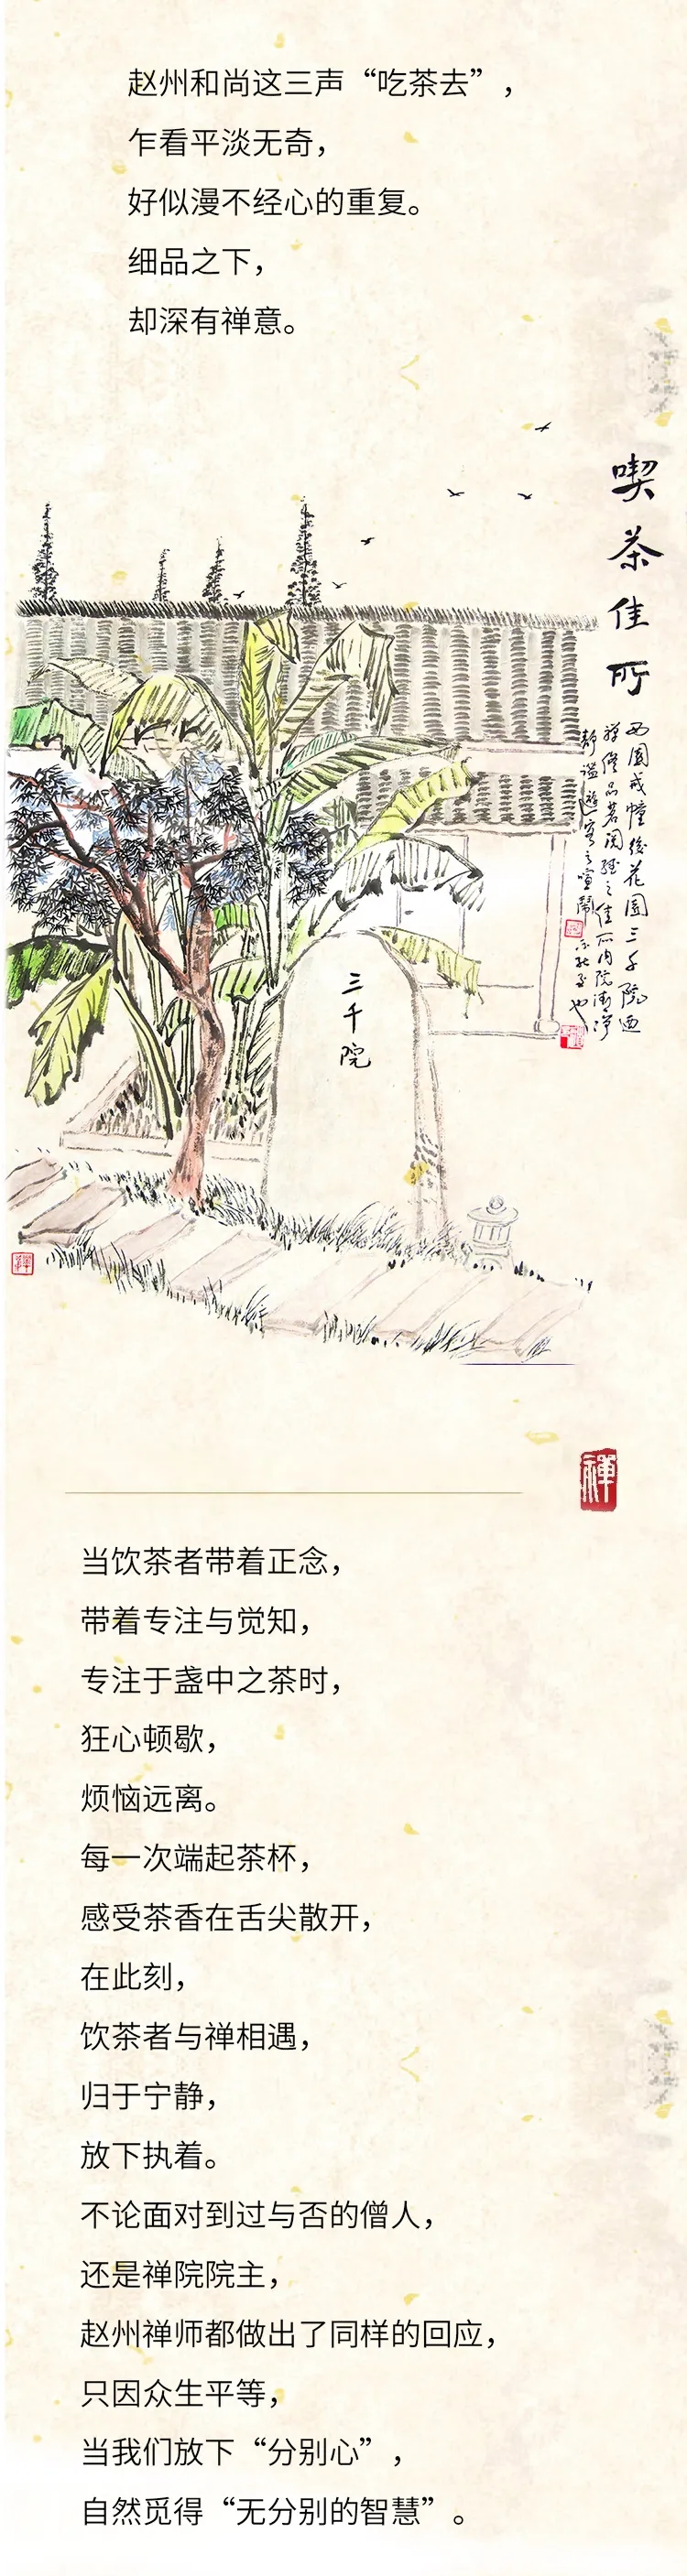 赵州和尚这三声“吃茶去”，
乍看平淡无奇，
好似漫不经心的重复。
细品之下，
却深有禅意。
喫茶佳所
西園戒幢後花園三千院迺
禅僧品茗閱經之佳所内院清净
静谧遊客之喧鬧
三千院
禪
当饮茶者带着正念，
带着专注与觉知，
专注于盏中之茶时，
狂心顿歇，
烦恼远离。
每一次端起茶杯，
感受茶香在舌尖散开，
在此刻，
饮茶者与禅相遇，
归于宁静，
放下执着。
不论面对到过与否的僧人，
还是禅院院主，
赵州禅师都做出了同样的回应，
只因众生平等，
当我们放下“分别心”，
自然觅得“无分别的智慧”。